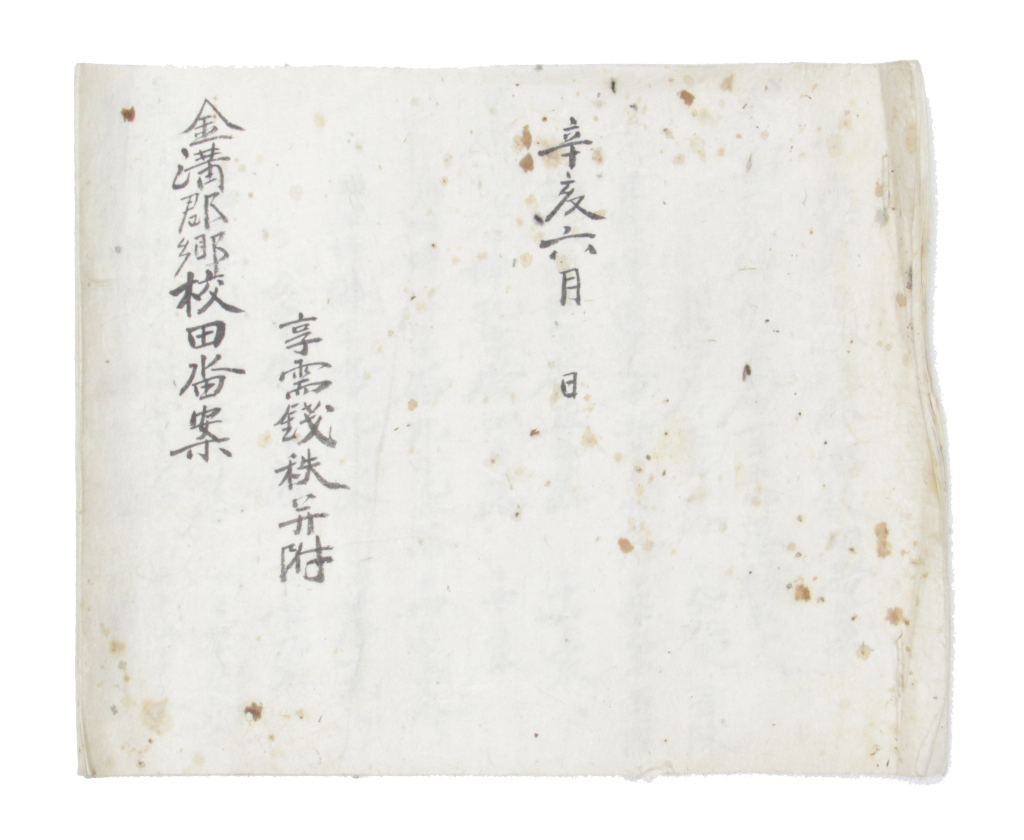 辛亥六月 日
享需錢秩并附
金溝郡鄕校田畓案